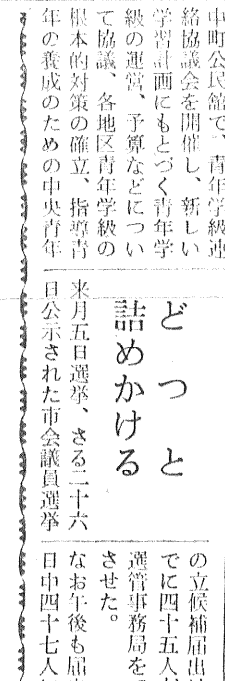 中町公民館で、青年学級連
絡協議会を開催し、新しい
学習計画にもとづく青年学
級の運営、予算などについ
て協議、各地区青年学級の
根本的対策の確立、指導青
年の養成のための中央青年
どつと
詰めかける
来月五日選挙、さる二十六
日公示された市会議員選挙
の立候補届出は
でに四十五人が
選管事務局を
させた。
なお午後も届
日中四十七人